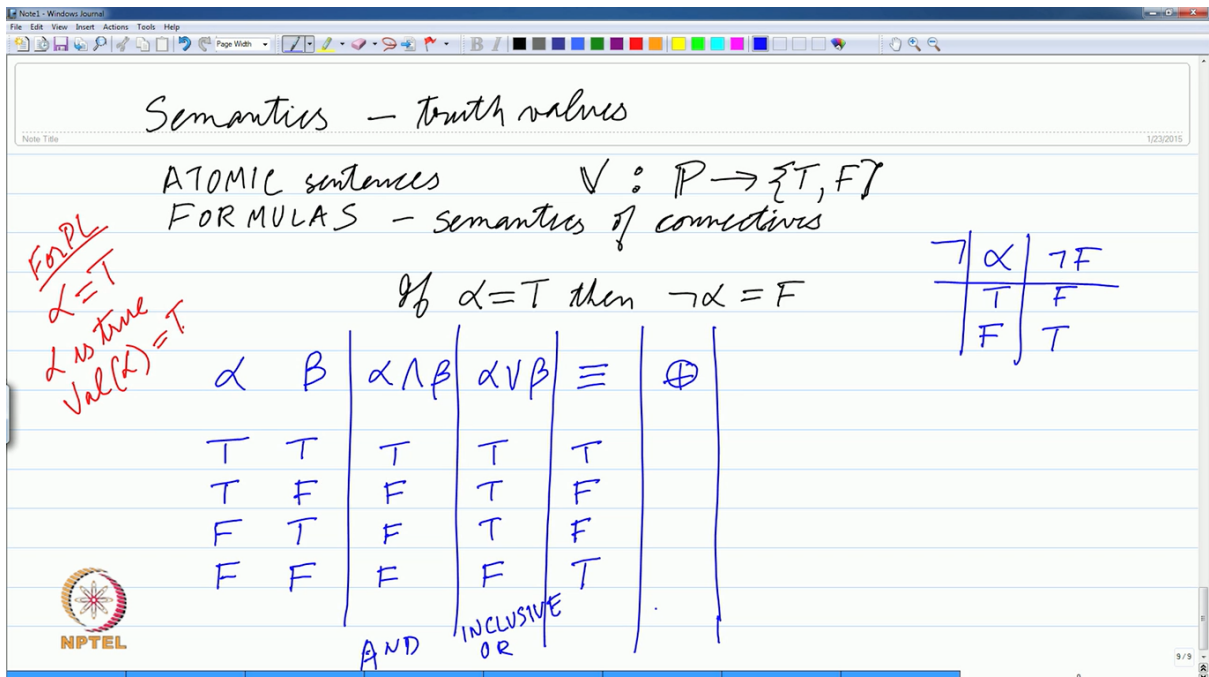 Note1 - Windows Journal
File Edit View Insert Actions Tools Help
Page Width
Semantics – truth values
Note Title
1/23/2015
ATOMIC sentences V : P → {T, F}
FORMULAS – semantics of connectives
For PL
α = T
α is true
Val(α) = T
If α = T then ¬α = F
¬ α ¬F
T F
F T
α β α∧β α∨β ≡ ⊕
T T T T T
T F F T F
F T F T F
F F F F T
AND
INCLUSIVE
OR
NPTEL
9 / 9